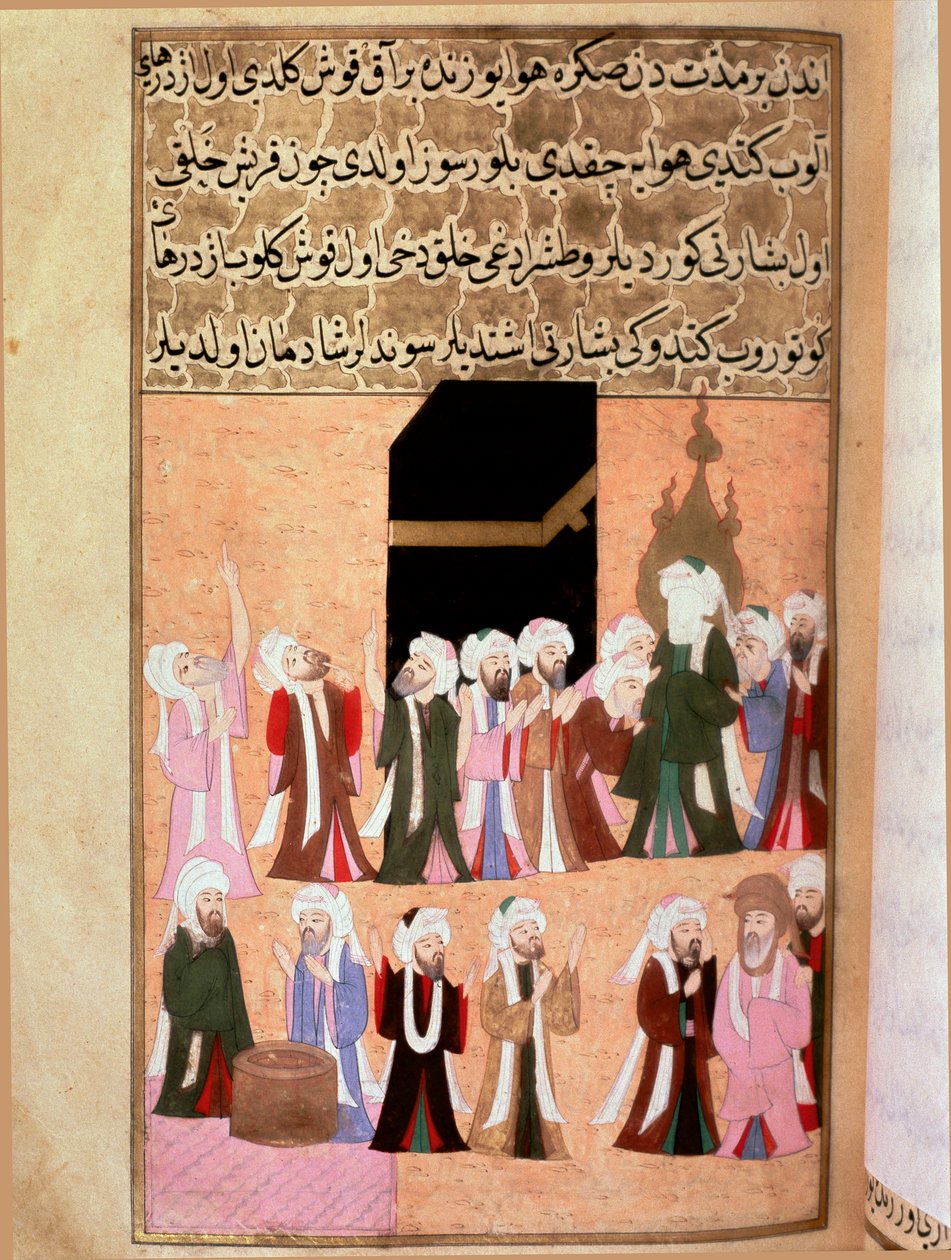 اندن بر مدّت دن صکره هوا یوزنده بر آق قوش کلدی اول اژدرهایی
آلوب کتدی هوایه چقدی بلورسوز اولدی چون قریش خَلقی
اول بشارتی کوردیلر و طشرادغی خلق دخی اول قوش کلوب اژدرهایی
کوتوروب کتدوکی بشارتی اشتدیلر سوندلر شادمان اولدیلر